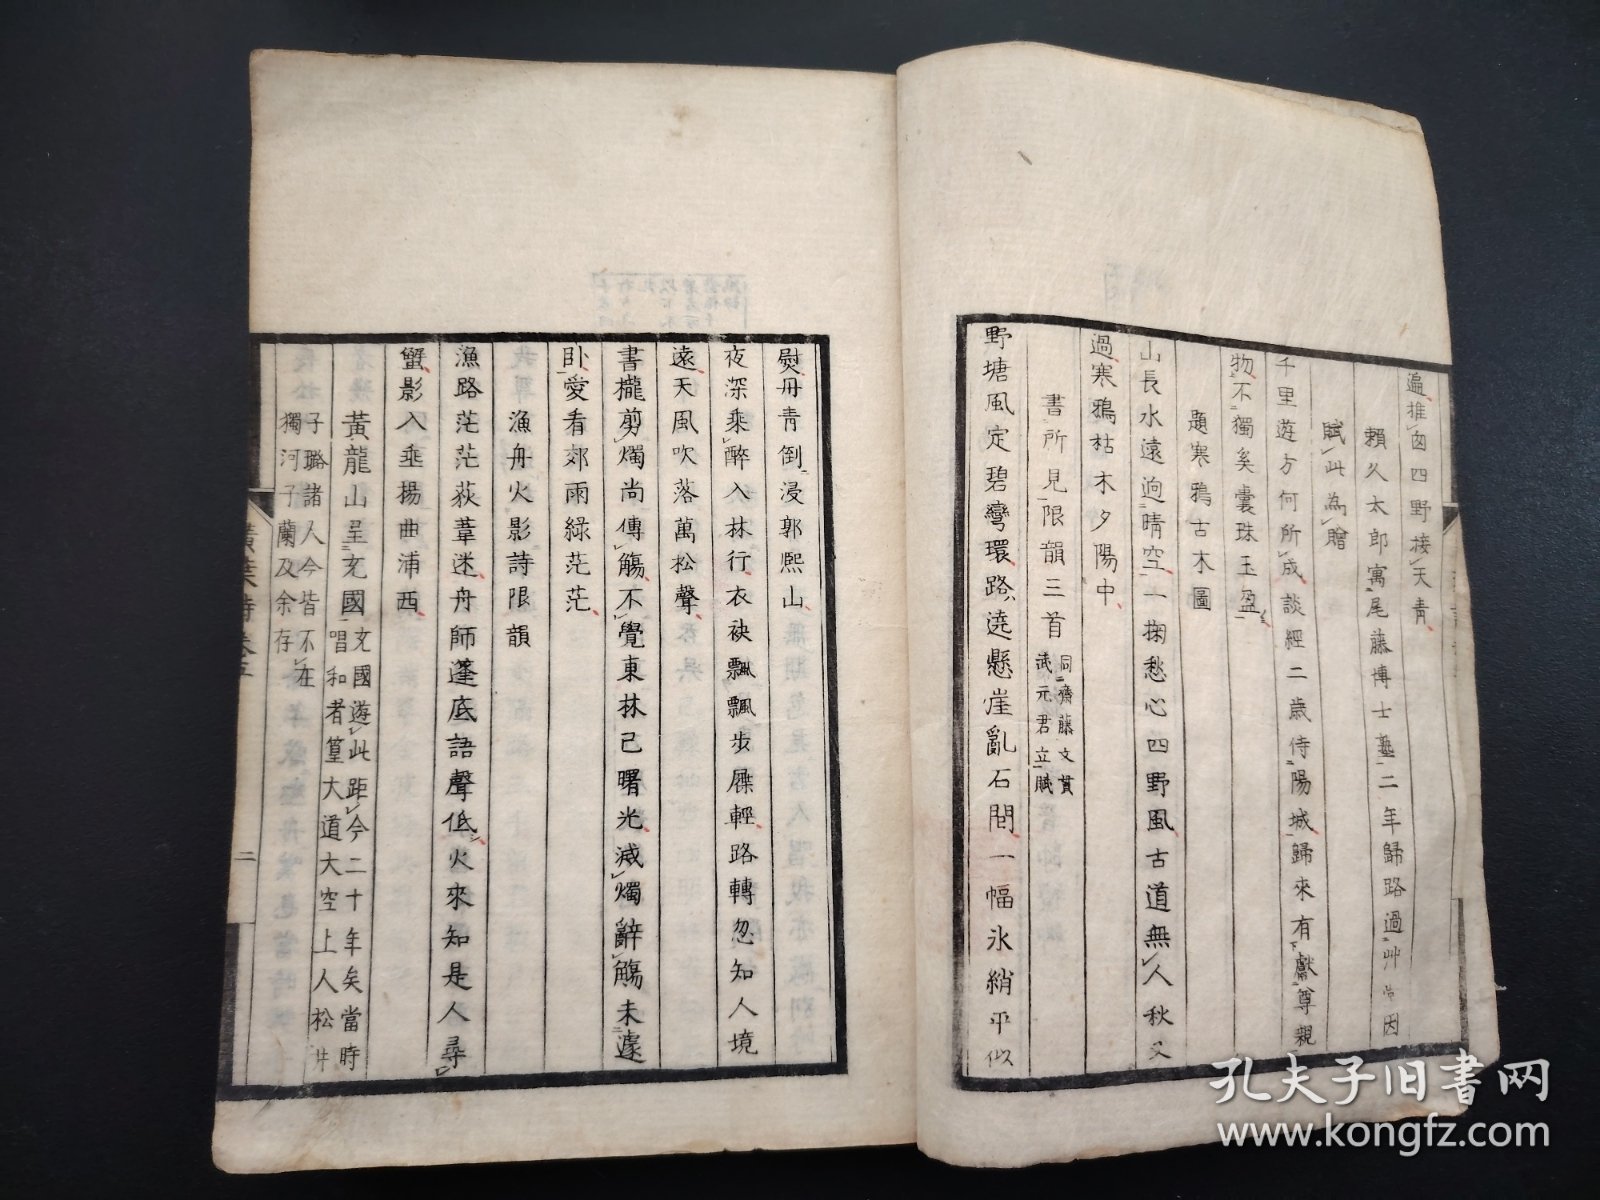 遍推囪四野接天青
賴久太郎寓尾藤博士塾二年歸路過艸堂因
賦此為贈
千里遊方何所成談經二歳侍陽城歸來有獻尊親
物不獨奚囊珠玉盈
題寒鴉古木圖
山長水遠逈晴空一掬愁心四野風古道無人秋又
過寒鴉枯木夕陽中
書所見限韻三首
同齋藤文貫
武元君立賦
野塘風定碧彎環路遶懸崖亂石間一幅氷綃平似
熨丹青倒浸郭熙山
夜深乘醉入林行衣袂飄飄步屧輕路轉忽知人境
遠天風吹落萬松聲
書櫳剪燭尚傳觴不覺東林已曙光滅燭辭觴未遽
臥愛看郊雨綠茫茫
漁舟火影詩限韻
漁路茫茫荻葦迷舟師蓬底語聲低火來知是人尋
蟹影入垂楊曲浦西
黃龍山呈玄國
玄國遊此距今二十年矣當時
唱和者篁大道大空上人松井
子璐諸人今皆不在
獨河子蘭及余存
黃葉詩卷五
二
孔夫子旧书网
www.kongfz.com